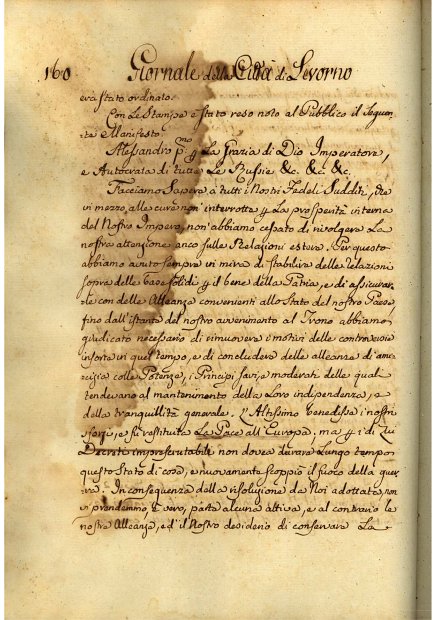 160 Giornale della Città di Livorno
era stato ordinato.
Con Le Stampe è stato reso noto al Pubblico il Seguen-
te Manifesto
Alessandro p.mo p La Grazia di Dio Imperatore,
e Autocrata di tutte Le Russie &c. &c. &c.
Facciamo Sapere à tutti i Nostri Fedeli Sudditi, che
in mezzo alle cure non interrotte p La prosperità interna
del Nostro Impero, non abbiamo cessato di rivolgere La
nostra attenzione anco sulle Relazioni estere. Per questo
abbiamo avuto sempre in mira di stabilire delle relazioni
sopra delle base solide p il bene della Patria, e di assicurar-
le con delle Alleanze convenienti allo Stato del nostro Paese,
fino dall'istante del nostro avvenimento al Trono abbiamo
giudicato necessario di rimuovere i motivi delle controversie
insorte in quel tempo, e di concludere delle alleanze di ami-
cizia colle Potenze, i Principj savj e moderati delle quali
tendevano al mantenimento della Loro indipendenza, e
della tranquillità generale. L'Altissimo benedisse i nostri
sforzi, e fu restituita La Pace all'Europa, ma p i di Lui
Decreti imperscrutabili non dovea durare Lungo tempo
questo Stato di cose, e nuovamente scoppiò il fuoco della guer-
ra. In conseguenza della risoluzione da Noi adottata non
vi prendemmo, è vero, parte alcuna attiva, e al contrario le
nostre Alleanze, ed il Nostro desiderio di conservare La